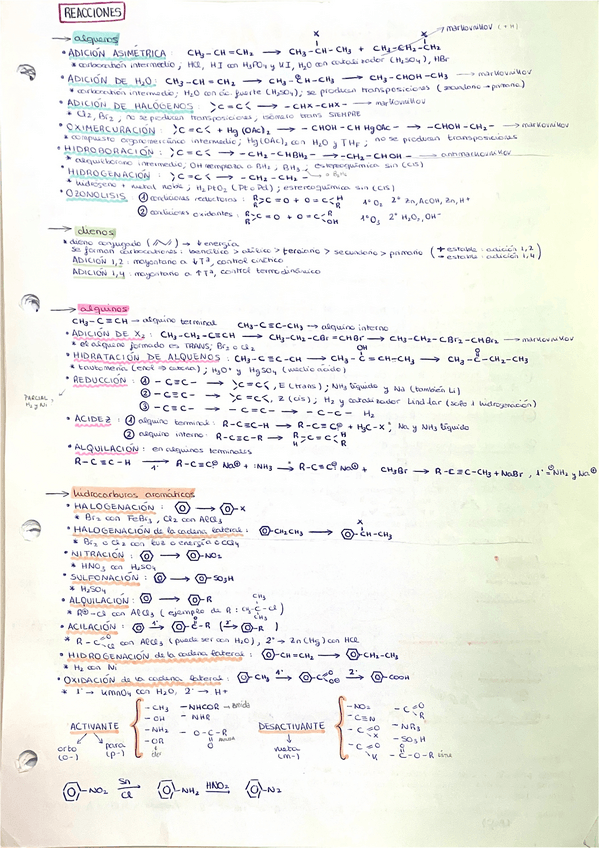 REACCIONES
→ alquenos
• ADICIÓN ASIMÉTRICA: CH₃-CH=CH₂ → CH₃-CH-CH₃ + CH₃-CH₂-CH₂ → markovnikov (+H)
X X
* carbocatión intermedio, HCl, HI con H₃PO₄ y KI, H₂O con catalizador (H₂SO₄), HBr
• ADICIÓN DE H₂O: CH₃-CH=CH₂ → CH₃-CH-CH₃ → CH₃-CHOH-CH₃ → markovnikov
* carbocatión intermedio; H₂O con ác. fuerte (H₂SO₄); se producen transposiciones (secundario → primario)
• ADICIÓN DE HALÓGENOS: >C=C< → -CHX-CHX- → markovnikov
* Cl₂, Br₂, no se producen transposiciones, isómero trans SIEMPRE
• OXIMERCURACIÓN: >C=C< + Hg(OAc)₂ → -CHOH-CH HgOAc- → -CHOH-CH₂- → markovnikov
* compuesto organomercúrico intermedio; Hg(OAc)₂ con H₂O y THF; no se producen transposiciones
• HIDROBORACIÓN: >C=C< → -CH₂-CHBH₂- → -CH₂-CHOH- → antimarkovnikov
* alquilborano intermedio, OH reemplaza a BH₂, BH₃, estereoquímica sin (cis)
• HIDROGENACIÓN: >C=C< → -CH₂-CH₂-
* hidrógeno + metal noble, H₂PtO₂ (Pt o Pd); estereoquímica sin (cis)
• OZONOLISIS: ① condiciones reductoras: R R >C=O + O=C< H R 1° O₃ 2° Zn, AcOH, Zn, H⁺
② condiciones oxidantes: R R >C=O + O=C< R OH 1° O₃ 2° H₂O₂, OH⁻
→ dienos
* dieno conjugado → ↓ energía
Se forman carbocationes: bencílico > alílico > terciario > secundario > primario (+ estable: adición 1,2
- estable: adición 1,4)
ADICIÓN 1,2: mayoritario a ↓Tª, control cinético
ADICIÓN 1,4: mayoritario a ↑Tª, control termodinámico
→ alquinos
CH₃-C≡CH → alquino terminal CH₃-C≡C-CH₃ → alquino interno
• ADICIÓN DE X₂: CH₃-CH₂-C≡CH → CH₃-CH₂-CBr=CHBr → CH₃-CH₂-CBr₂-CHBr₂ → markovnikov
* el alqueno formado es TRANS; Br₂ o Cl₂
OH
• HIDRATACIÓN DE ALQUENOS: CH₃-C≡C-CH → CH₃-C=CH-CH₃ → CH₃-C-CH₂-CH₃
O
* tautomería (enol → cetona); H₃O⁺ y HgSO₄ (medio ácido)
• REDUCCIÓN: ① -C≡C- → >C=C<, E (trans); NH₃ líquido y Na (también Li)
② -C≡C- → >C=C<, Z (cis); H₂ y catalizador Lindlar (solo 1 hidrogenación)
PARCIAL H₂ y Ni
③ -C≡C- → -C=C- → -C-C- H₂
• ACIDEZ: ① alquino terminal: R-C≡C-H → R-C≡C⊖ + H₃C-X; Na y NH₃ líquido
② alquino interno: R-C≡C-R → R H >C=C< H R
• ALQUILACIÓN: en alquinos terminales
R-C≡C-H → R-C≡C⊖ Na⊕ + :NH₃ → R-C≡C⊖ Na⊕ + CH₃Br → R-C≡C-CH₃ + NaBr, 1° = ⊖NH₂ y Na⊕
→ hidrocarburos aromáticos
• HALOGENACIÓN: → -X
* Br₂ con FeBr₃, Cl₂ con AlCl₃
X
• HALOGENACIÓN de la cadena lateral: -CH₂CH₃ → -CH-CH₃
* Br₂ o Cl₂ con luz o energía o CCl₄
• NITRACIÓN: → -NO₂
* HNO₃ con H₂SO₄
• SULFONACIÓN: → -SO₃H
* H₂SO₄
• ALQUILACIÓN: → -R
* R-Cl con AlCl₃ (ejemplo de R: CH₃-C-Cl)
CH₃
CH₃
• ACILACIÓN: 1° → -C-R (2° → -R)
O
* R-C=O Cl con AlCl₃ (puede ser con H₂O), 2° → Zn(Hg) con HCl
• HIDROGENACIÓN de la cadena lateral: -CH=CH₂ → -CH₂-CH₃
* H₂ con Ni
• OXIDACIÓN de la cadena lateral: -CH₃ 1° → -C=O O⊖ 2° → -COOH
* 1° → KMnO₄ con H₂O, 2° → H⁺
ACTIVANTE
orto (o-)
para (p-)
-CH₃
-OH
-NH₂
-OR
-NHCOR → amida
-NHR
-O-C-R
O
DESACTIVANTE
meta (m-)
-NO₂
-C≡N
-C=O X
-C=O H
-C=O R
-NR₃
-SO₃H
-C-O-R
O
-NO₂ Sn → Cl -NH₂ HNO₂ → -N₂